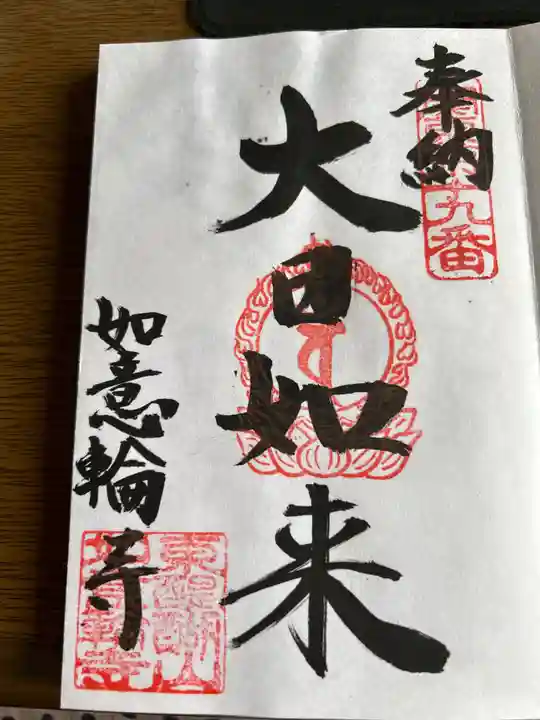 奉納
九番
大日如来
如意輪寺